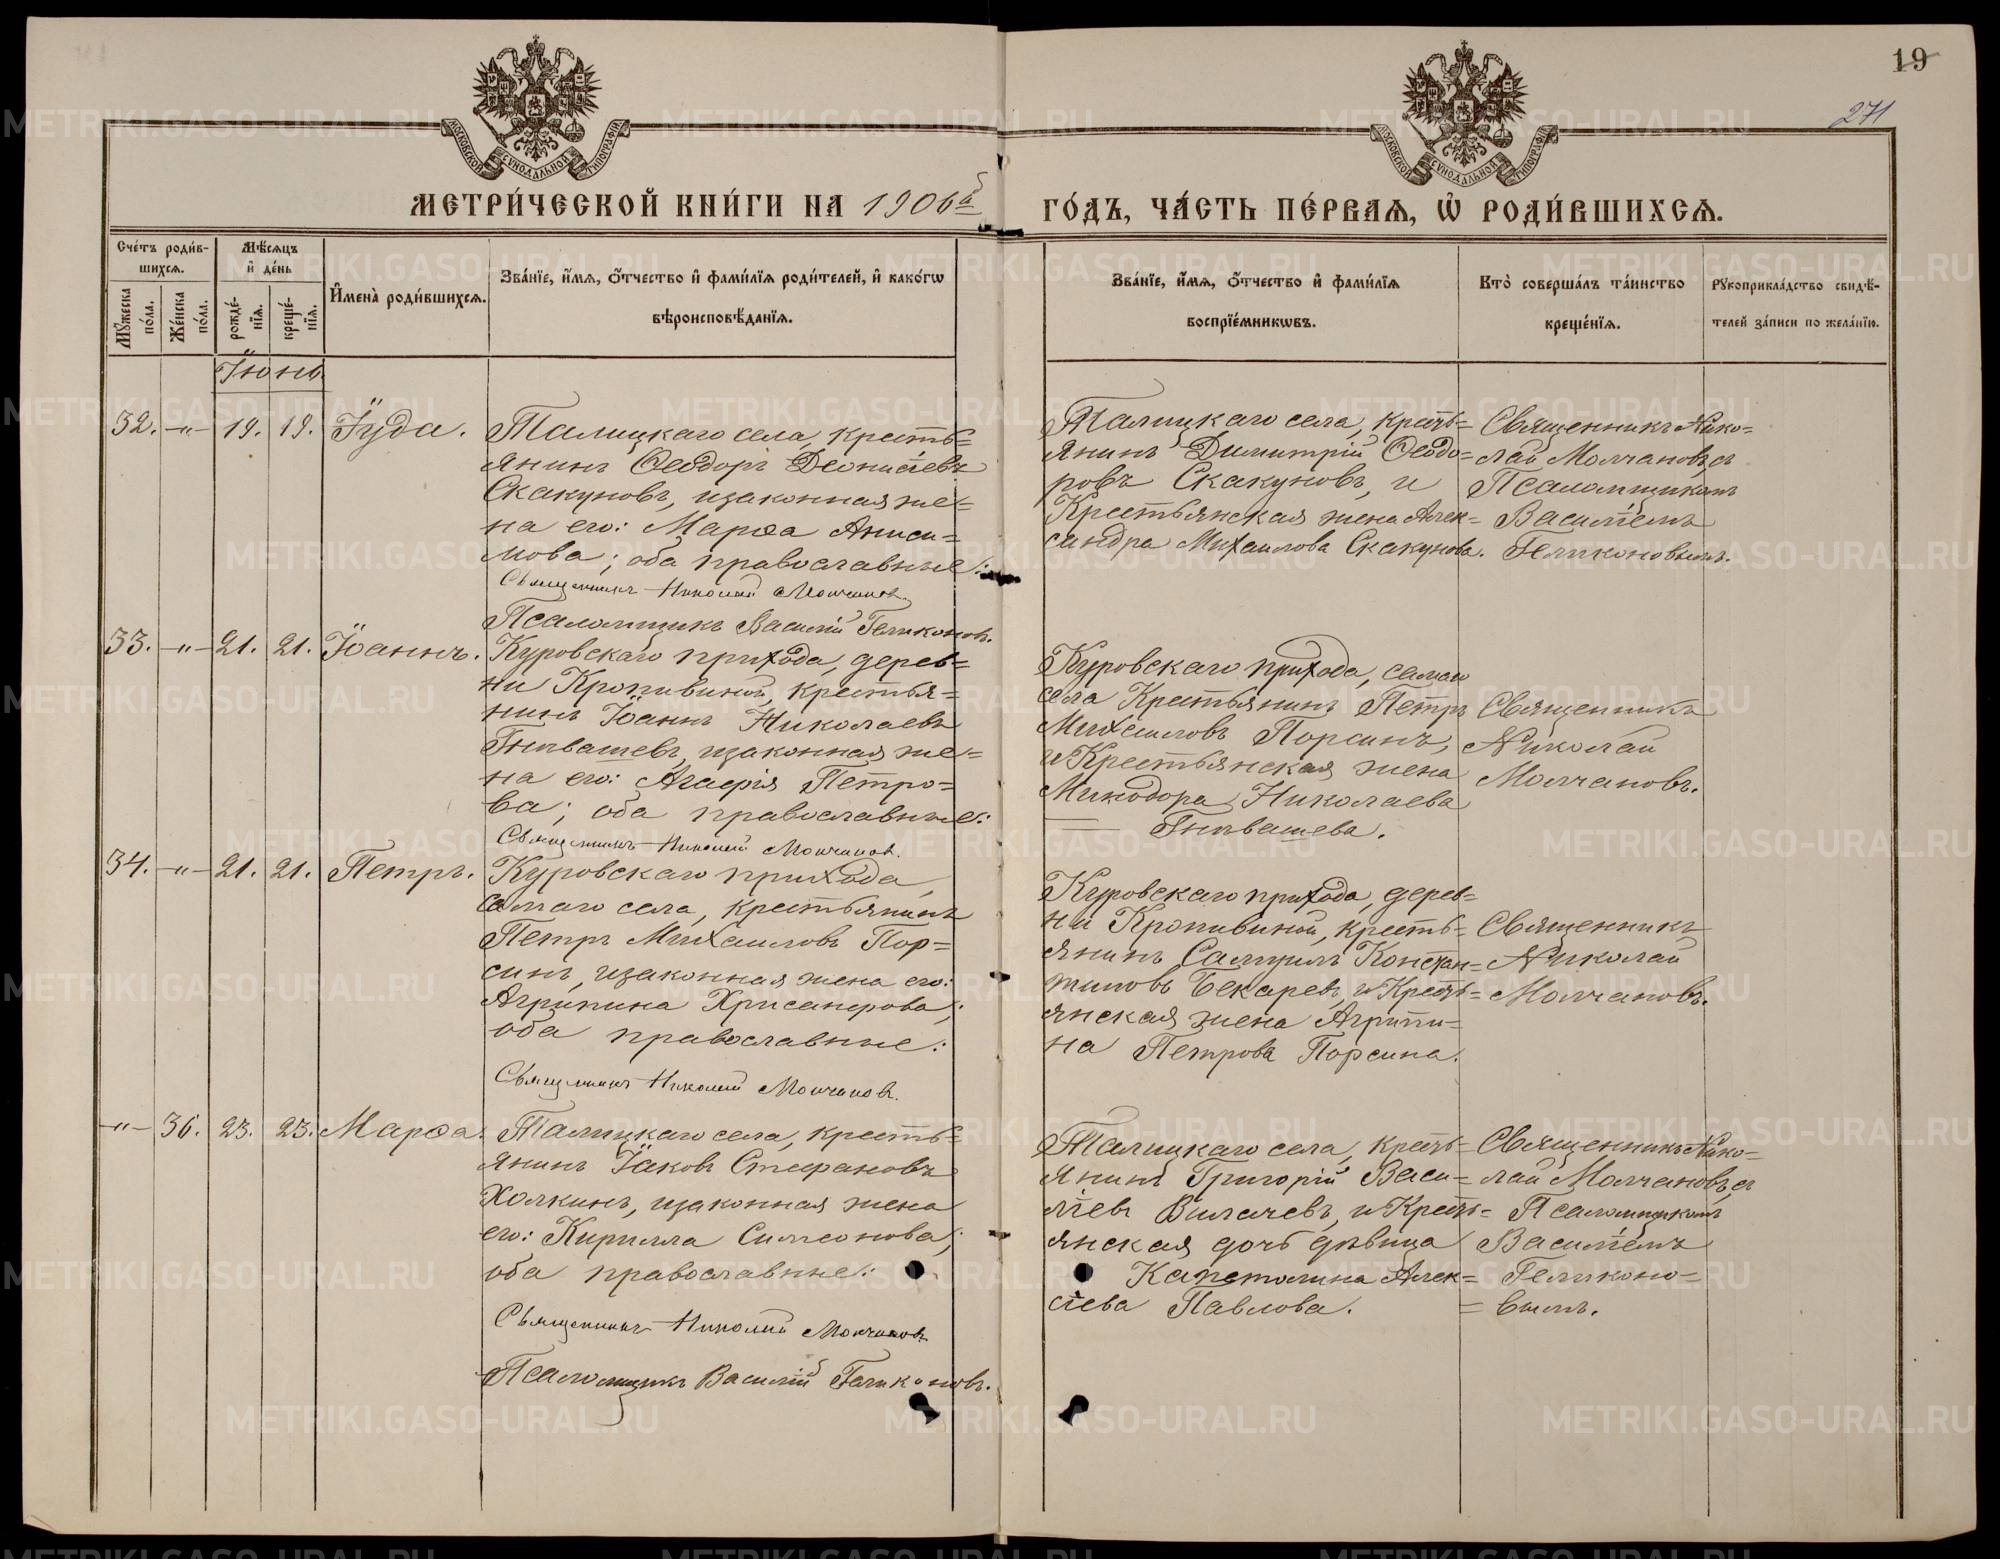 19
271
МОСКОВСКОЙ СѴНОДАЛЬНОЙ ТИПОГРАФІИ
МОСКОВСКОЙ СѴНОДАЛЬНОЙ ТИПОГРАФІИ
МЕТРИ́ЧЕСКОЙ КНИ́ГИ НА 1906й
ГО́ДЪ, ЧА́СТЬ ПЕ́РВАѦ, Ѡ҆ РОДИ́ВШИХСѦ.
Сче́тъ роди́в-
шихсѧ.
Мꙋ́жеска по́ла.
Же́нска по́ла.
Мѣ́сѧцъ
и҆ де́нь
рожде́-
нїѧ.
креще́-
нїѧ.
И҆мена̀ роди́вшихсѧ.
Зва́нїе, и҆́мѧ, ѻ҆́тчество и҆ фами́лїѧ роди́телей, и҆ како́гѡ
вѣроисповѣ́данїѧ.
Зва́нїе, и҆́мѧ, ѻ҆́тчество и҆ фами́лїѧ
воспрїе́мникѡвъ.
Кто̀ соверша́лъ та́инство
креще́нїѧ.
Рꙋкоприкла́дство свидѣ́-
телей за́писи по жела́нїю.
Іюнь
32. -"- 19. 19. Іуда.
Талицкаго села, кресть=
янинъ Ѳеодоръ Деонисіевъ
Скакуновъ, и законная же=
на его: Марѳа Аниси=
мова; оба православные:
Священникъ Николай Молчановъ.
Псаломщикъ Василій Геликоновъ.
Талицкаго села, кресть=
янинъ Димитрій Ѳеодо=
ровъ Скакуновъ, и
Крестьянская жена Алек=
сандра Михаилова Скакунова.
Священникъ Нико=
лай Молчановъ, съ
Псаломщикомъ
Василіемъ
Геликоновымъ.
33. -"- 21. 21. Іоаннъ.
Куровскаго прихода, дерев=
ни Кропивиной, крестья=
нинъ Іоаннъ Николаевъ
Гилвашевъ, и законная же=
на его: Агаѳія Петро=
ва; оба православные:
Священникъ Николай Молчановъ.
Куровскаго прихода, самаго
села Крестьянинъ Петръ
Михаиловъ Порсинъ,
и Крестьянская жена
Минодора Николаева
Гилвашева.
Священникъ
Николай
Молчановъ.
34. -"- 21. 21. Петръ.
Куровскаго прихода,
самаго села, крестьянинъ
Петръ Михаиловъ Пор=
синъ, и законная жена его:
Агрипина Хрисанфова;
оба православные:
Священникъ Николай Молчановъ.
Куровскаго прихода, дерев=
ни Кропивиной, кресть=
янинъ Самуилъ Констан=
тиновъ Бекаревъ, и Кресть=
янская жена Агрипи=
на Петрова Порсина.
Священникъ
Николай
Молчановъ.
-"- 36. 23. 23. Марѳа.
Талицкаго села, кресть=
янинъ Іаковъ Стефановъ
Холкинъ, и законная жена
его: Кирилла Симеонова;
оба православные:
Священникъ Николай Молчановъ
Псаломщикъ Василій Геликоновъ.
Талицкаго села, кресть=
янинъ Григорій Васи=
ліевъ Вилачевъ, и Кресть=
янская дочь дѣвица
Капетолина Алек=
сіева Павлова.
Священникъ Нико=
лай Молчановъ, съ
Псаломщикомъ
Василіемъ
Геликоно=
=вымъ.
METRIKI.GASO-URAL.RU